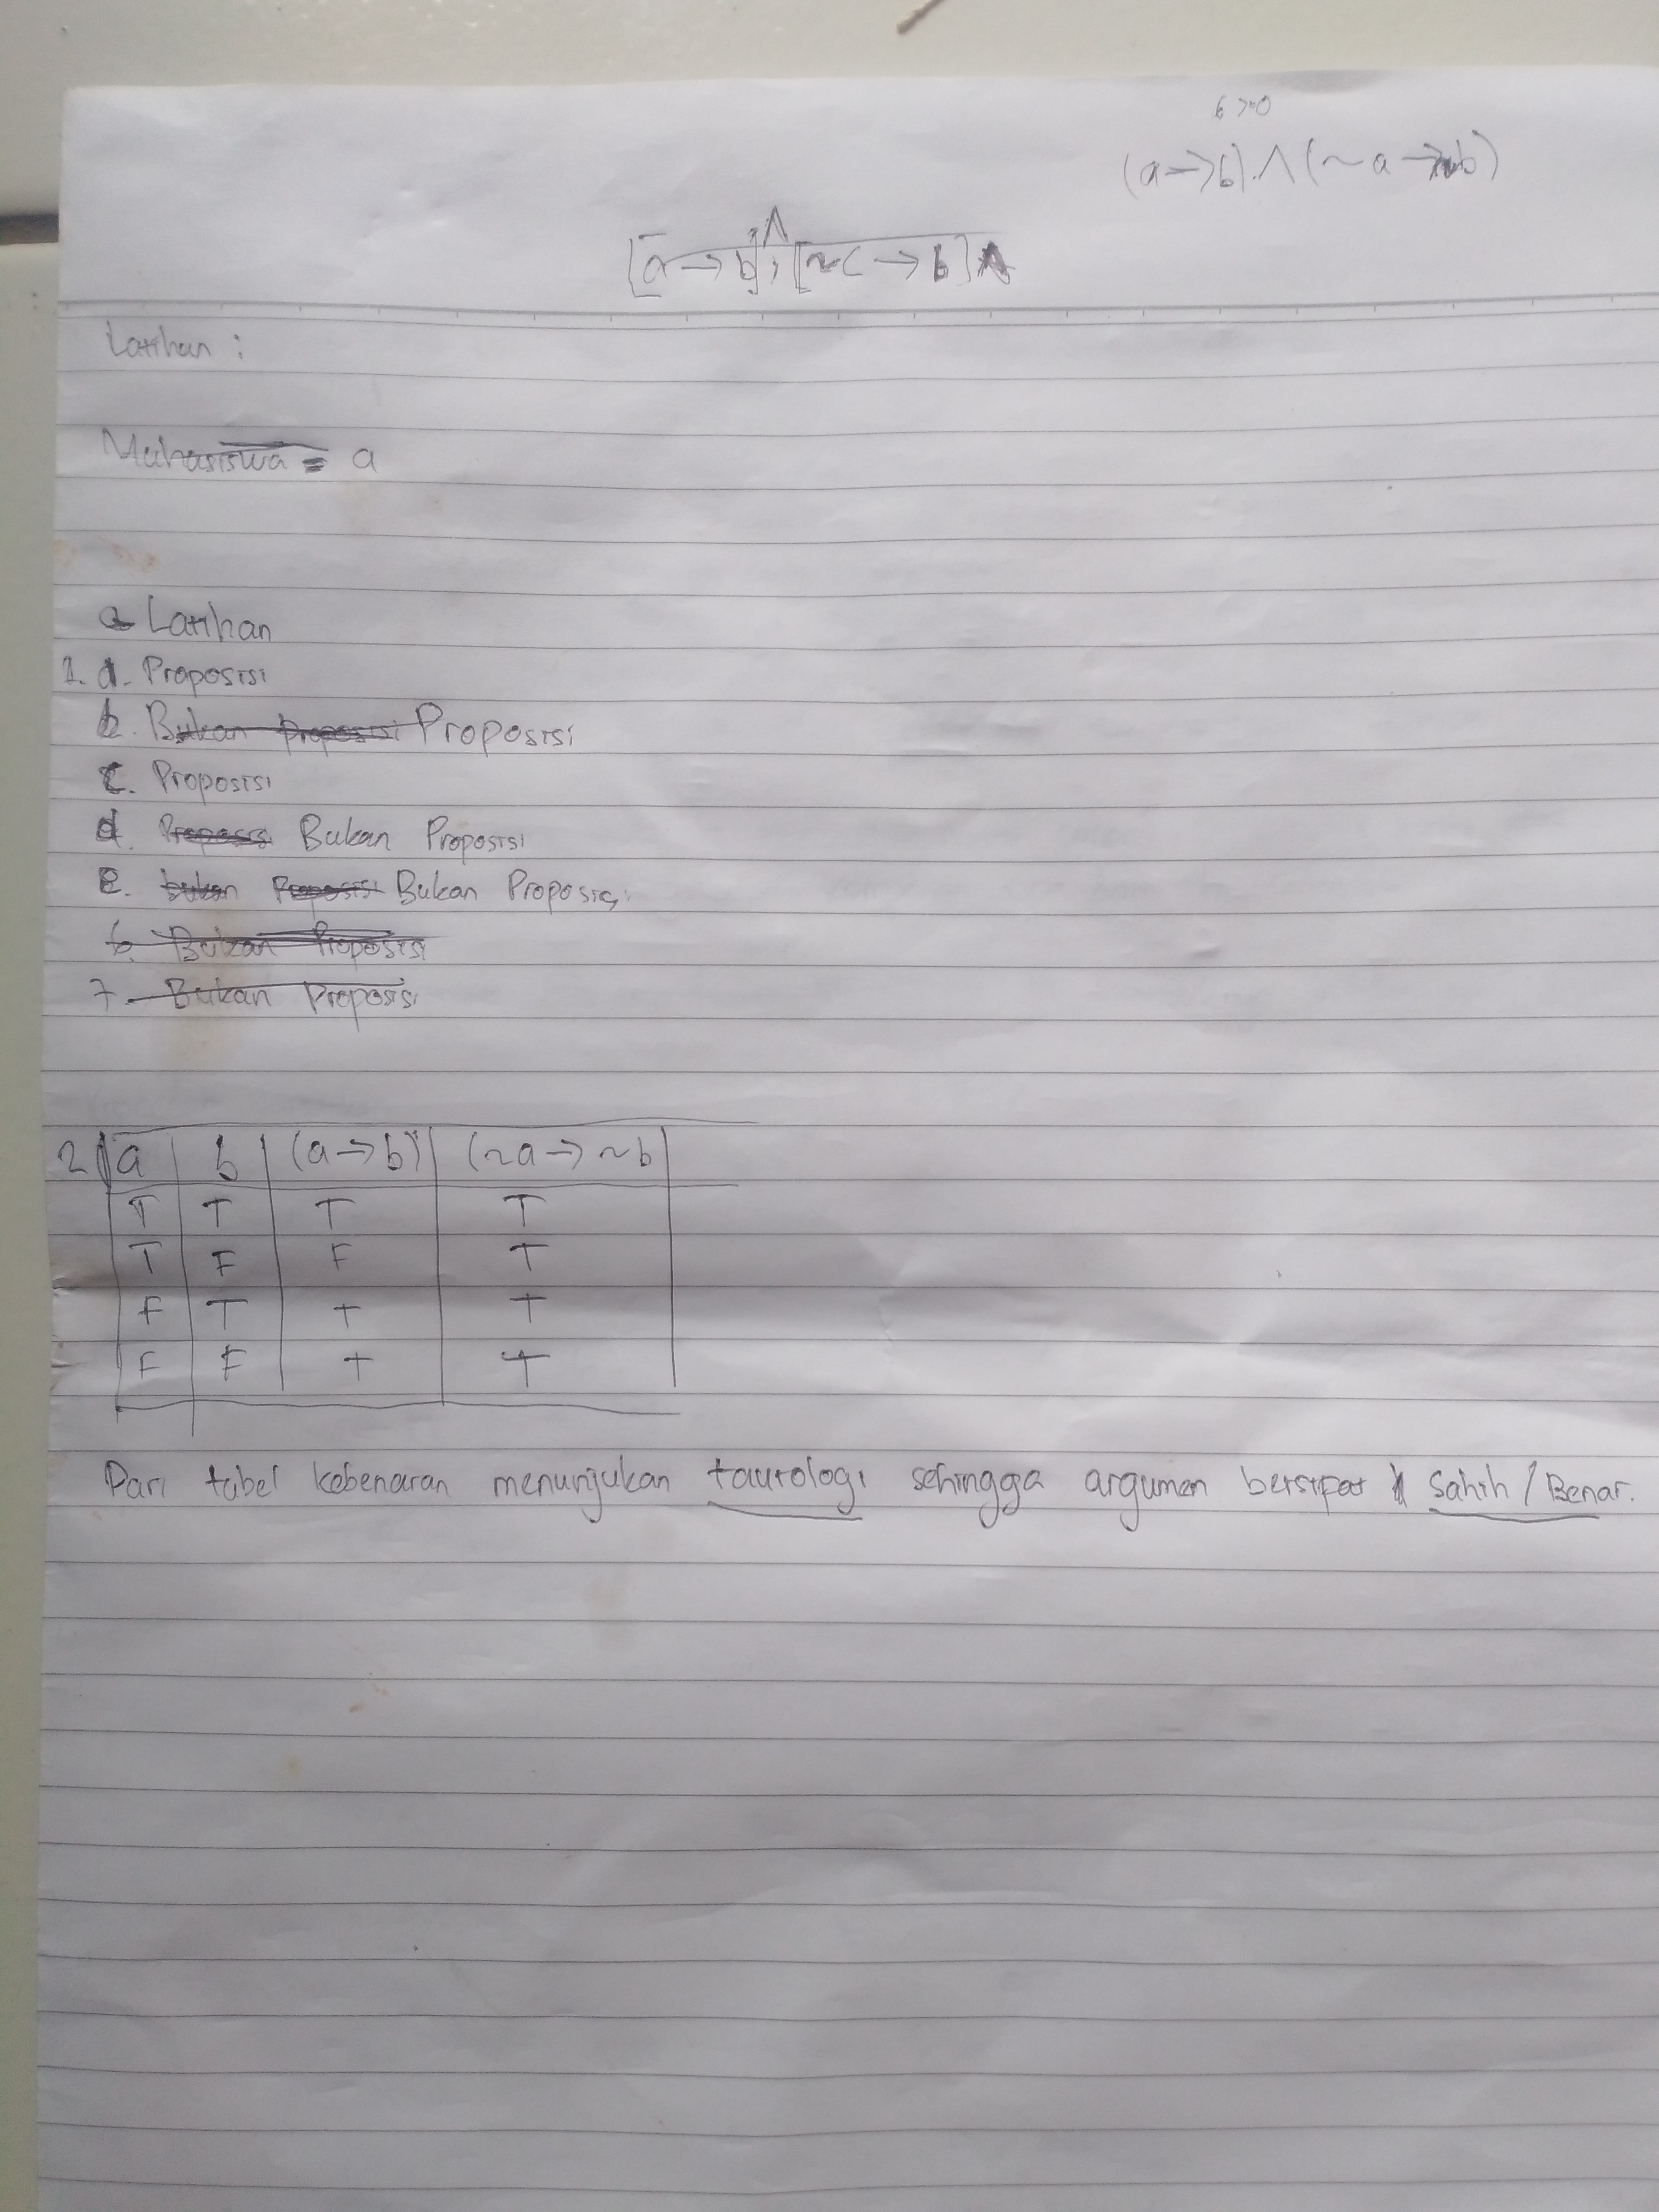 (a→b) ∧ (~a→~b)
[a→b] ∧ [~c→b]
Latihan :
Mahasiswa = a
Latihan
1. a. Proposisi
b. Bukan Proposisi Proposisi
c. Proposisi
d. Proposisi Bukan Proposisi
e. bukan Proposisi Bukan Proposisi
6. Bukan Proposisi
7. Bukan Proposisi
2 a b (a→b) (~a→~b)
T T T T
T F F T
F T T T
F F T T
Dari tabel kebenaran menunjukan tautologi sehingga argumen bersipat Sahih / Benar.